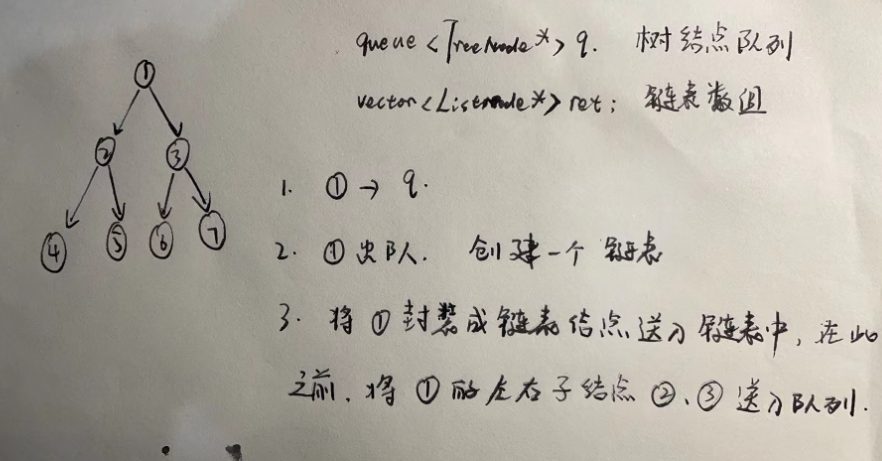 queue<TreeNode*> q. 树结点队列
vector<Listnode*> ret; 链表数组
①
② ③
④ ⑤ ⑥ ⑦
1. ① → q.
2. ① 出队. 创建一个 链表
3. 将 ① 封装成链表结点送入链表中, 在此
之前, 将 ① 的左右子结点 ②、③ 送入队列.